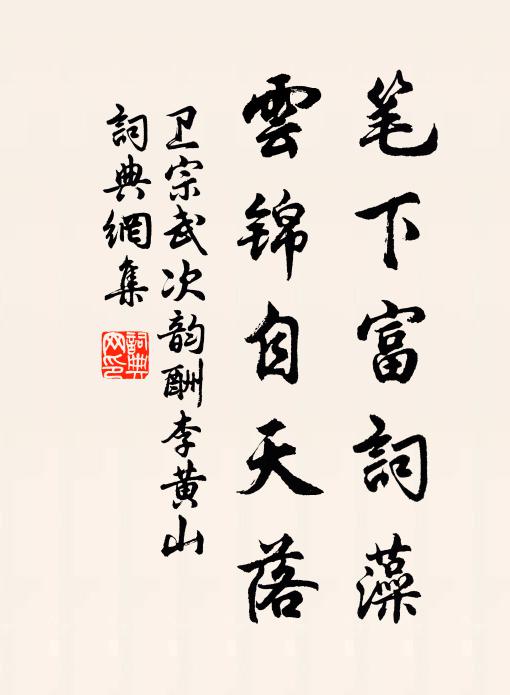 笔下富詞藻
雲锦自天落
卫宗武次韵酬李黄山
詞典網集
詞典网印